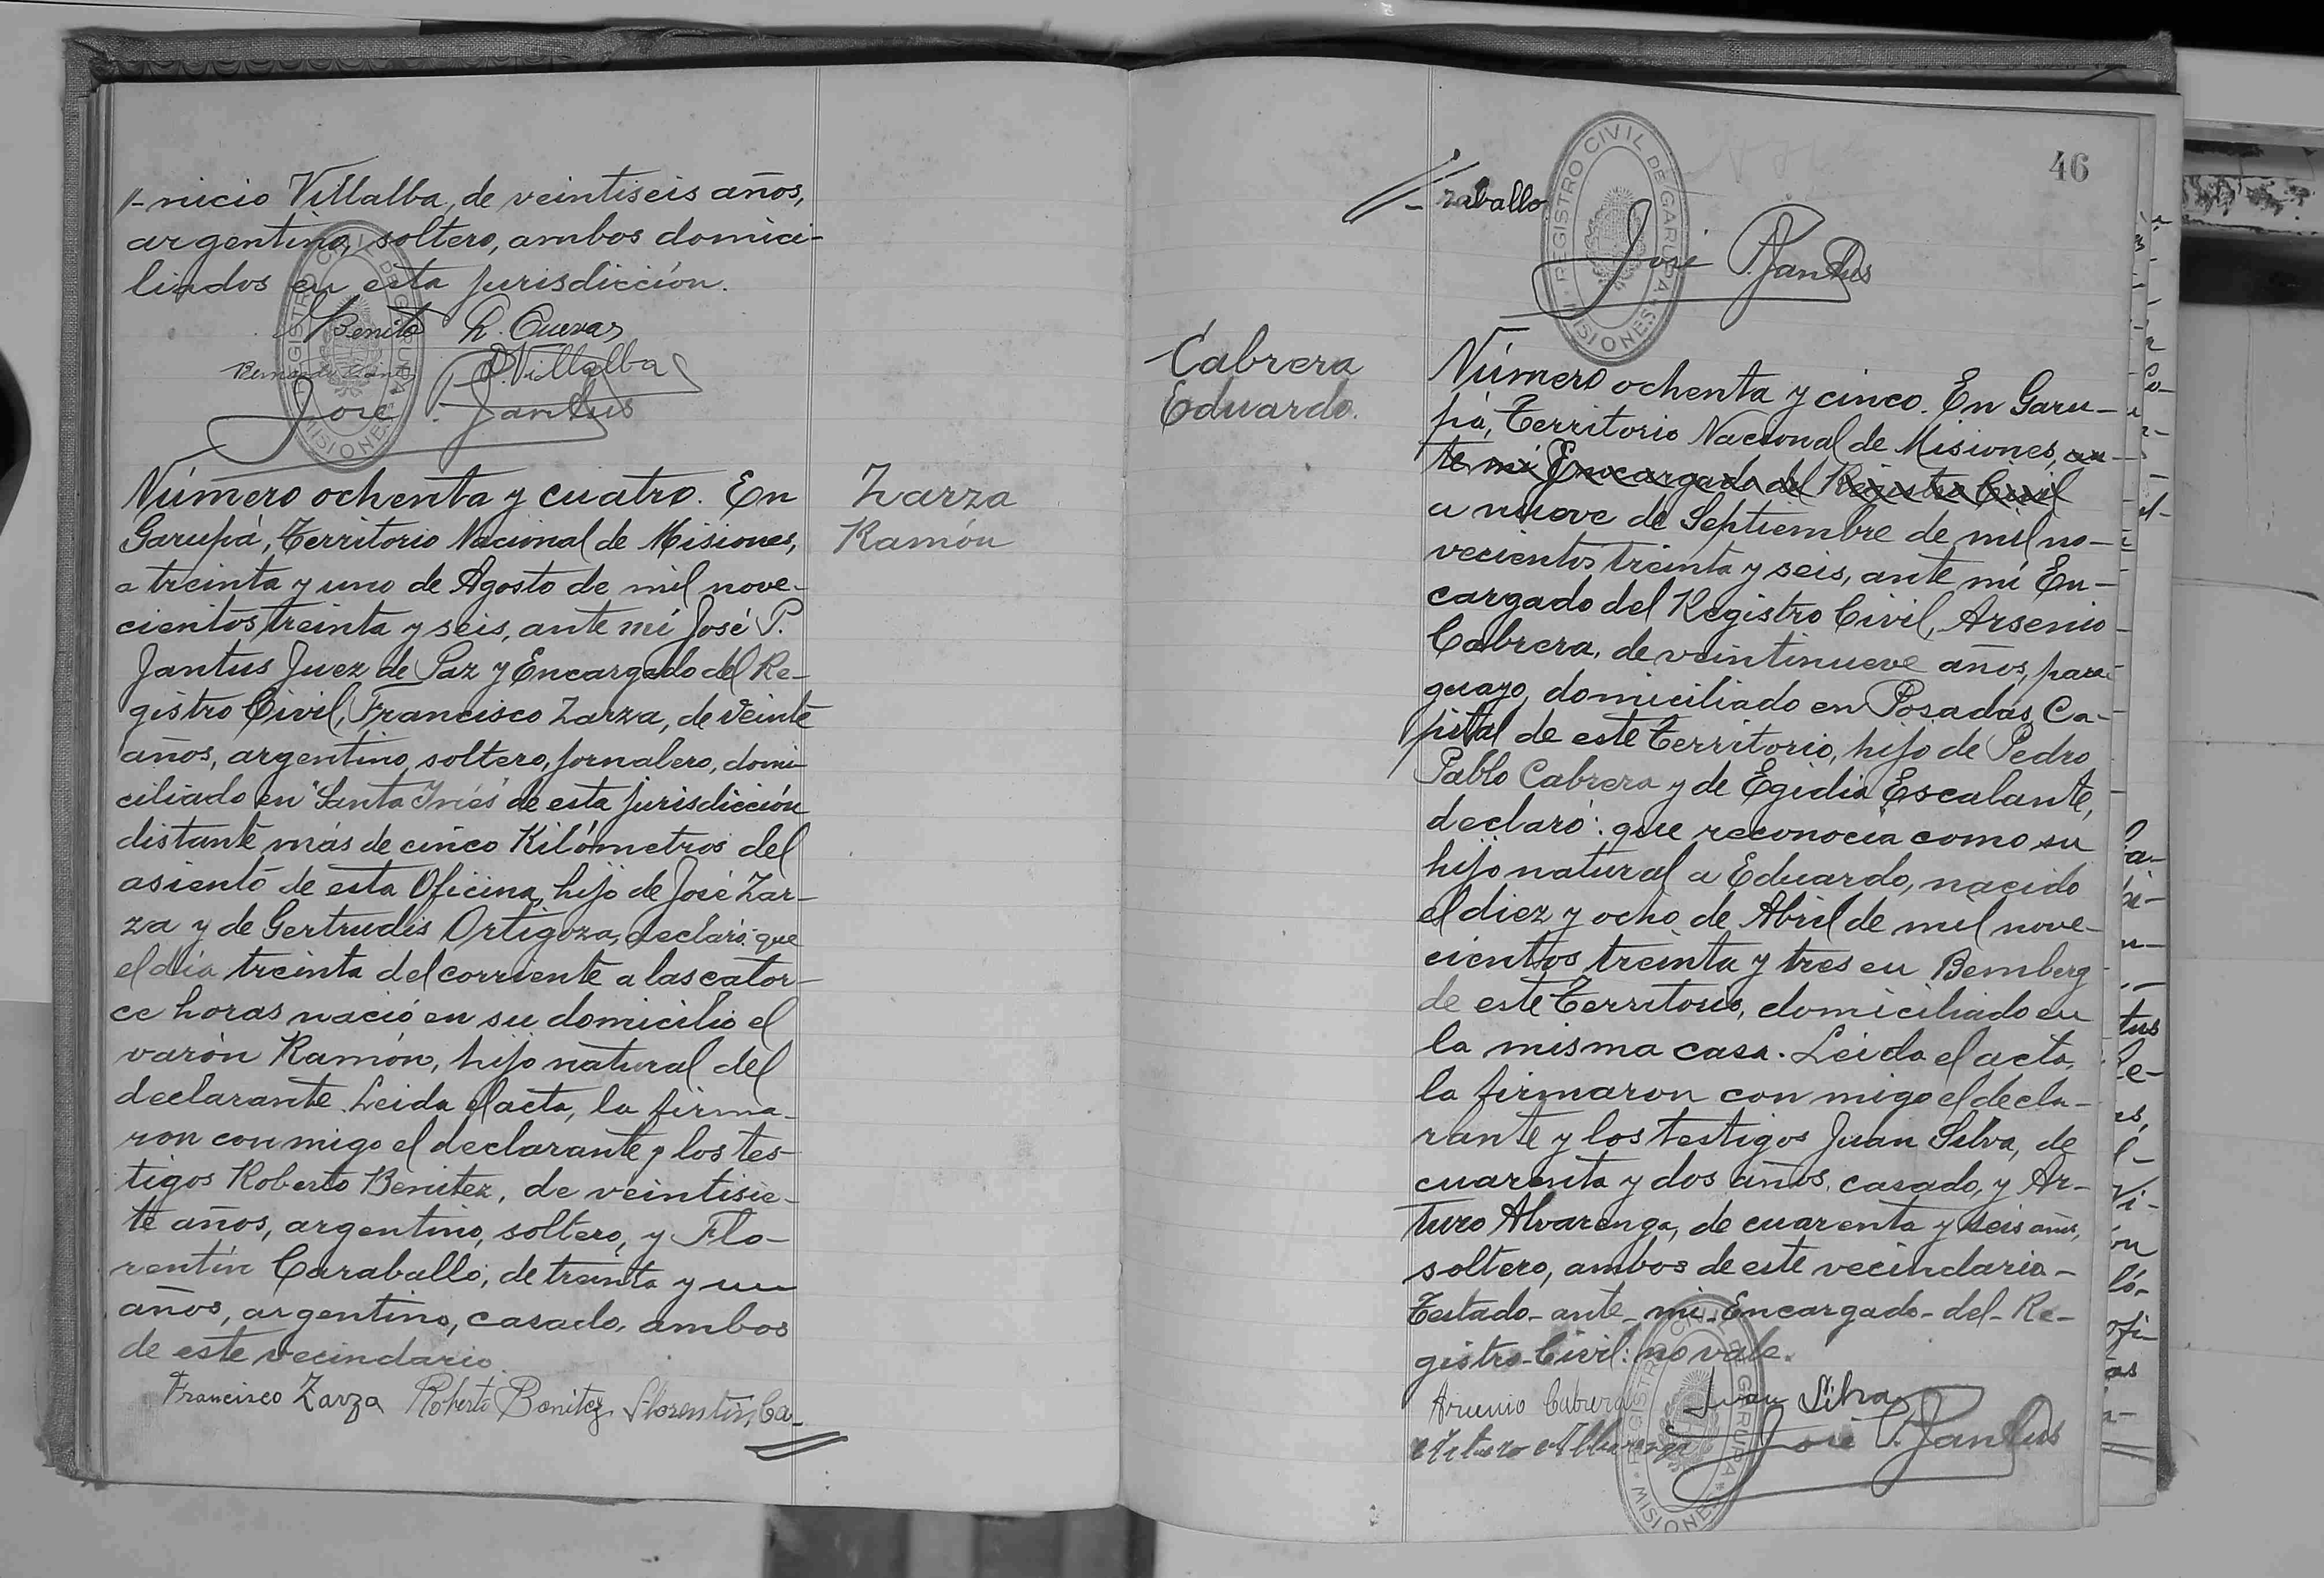 -nicio Villalba, de veintiseis años,
argentino, soltero, ambos domici-
liados en esta jurisdicción.
Benito R. Cuevas
Villalba
José P. Jantus
Número ochenta y cuatro. En
Garupá, Territorio Nacional de Misiones,
a treinta y uno de Agosto de mil nove-
cientos treinta y seis, ante mí José P.
Jantus Juez de Paz y Encargado del Re-
gistro Civil, Francisco Zarza, de veinte
años, argentino, soltero, jornalero, domi-
ciliado en "Santa Inés" de esta jurisdicción
distante más de cinco Kilómetros del
asiento de esta Oficina, hijo de José Zar-
za y de Gertrudis Ortigoza, declaró: que
el día treinta del corriente a las cator-
ce horas nació en su domicilio el
varón Ramón, hijo natural del
declarante. Leida el acta, la firma-
ron conmigo el declarante y los tes-
tigos Roberto Benitez, de veintisie-
te años, argentino, soltero, y Flo-
rentín Caraballo, de treinta y un
años, argentino, casado, ambos
de este vecindario.
Francisco Zarza Roberto Benitez Florentín Ca-
Zarza
Ramón
46
-raballo
REGISTRO CIVIL DE GARUPA
MISIONES
José P. Jantus
Cabrera
Eduardo.
Número ochenta y cinco. En Garu-
pá, Territorio Nacional de Misiones, an-
te mi Encargado del Registro Civil
a nueve de Septiembre de mil no-
vecientos treinta y seis, ante mí En-
cargado del Registro Civil, Arsenio
Cabrera, de veintinueve años, para-
guayo, domiciliado en Posadas, Ca-
pital de este Territorio, hijo de Pedro
Pablo Cabrera y de Egidia Escalante,
declaró: que reconocía como su
hijo natural a Eduardo, nacido
el diez y ocho de Abril de mil nove-
cientos treinta y tres en Bemberg
de este Territorio, domiciliado en
la misma casa. Leida el acta,
la firmaron con migo el decla-
rante y los testigos Juan Silva, de
cuarenta y dos años, casado, y Ar-
turo Alvarenga, de cuarenta y seis años,
soltero, ambos de este vecindario-
Testado- ante- mi- Encargado- del- Re-
gistro- Civil: no vale.
Arsenio Cabrera Juan Silva
Arturo Alvarenga José P. Jantus
REGISTRO CIVIL DE GARUPA
MISIONES